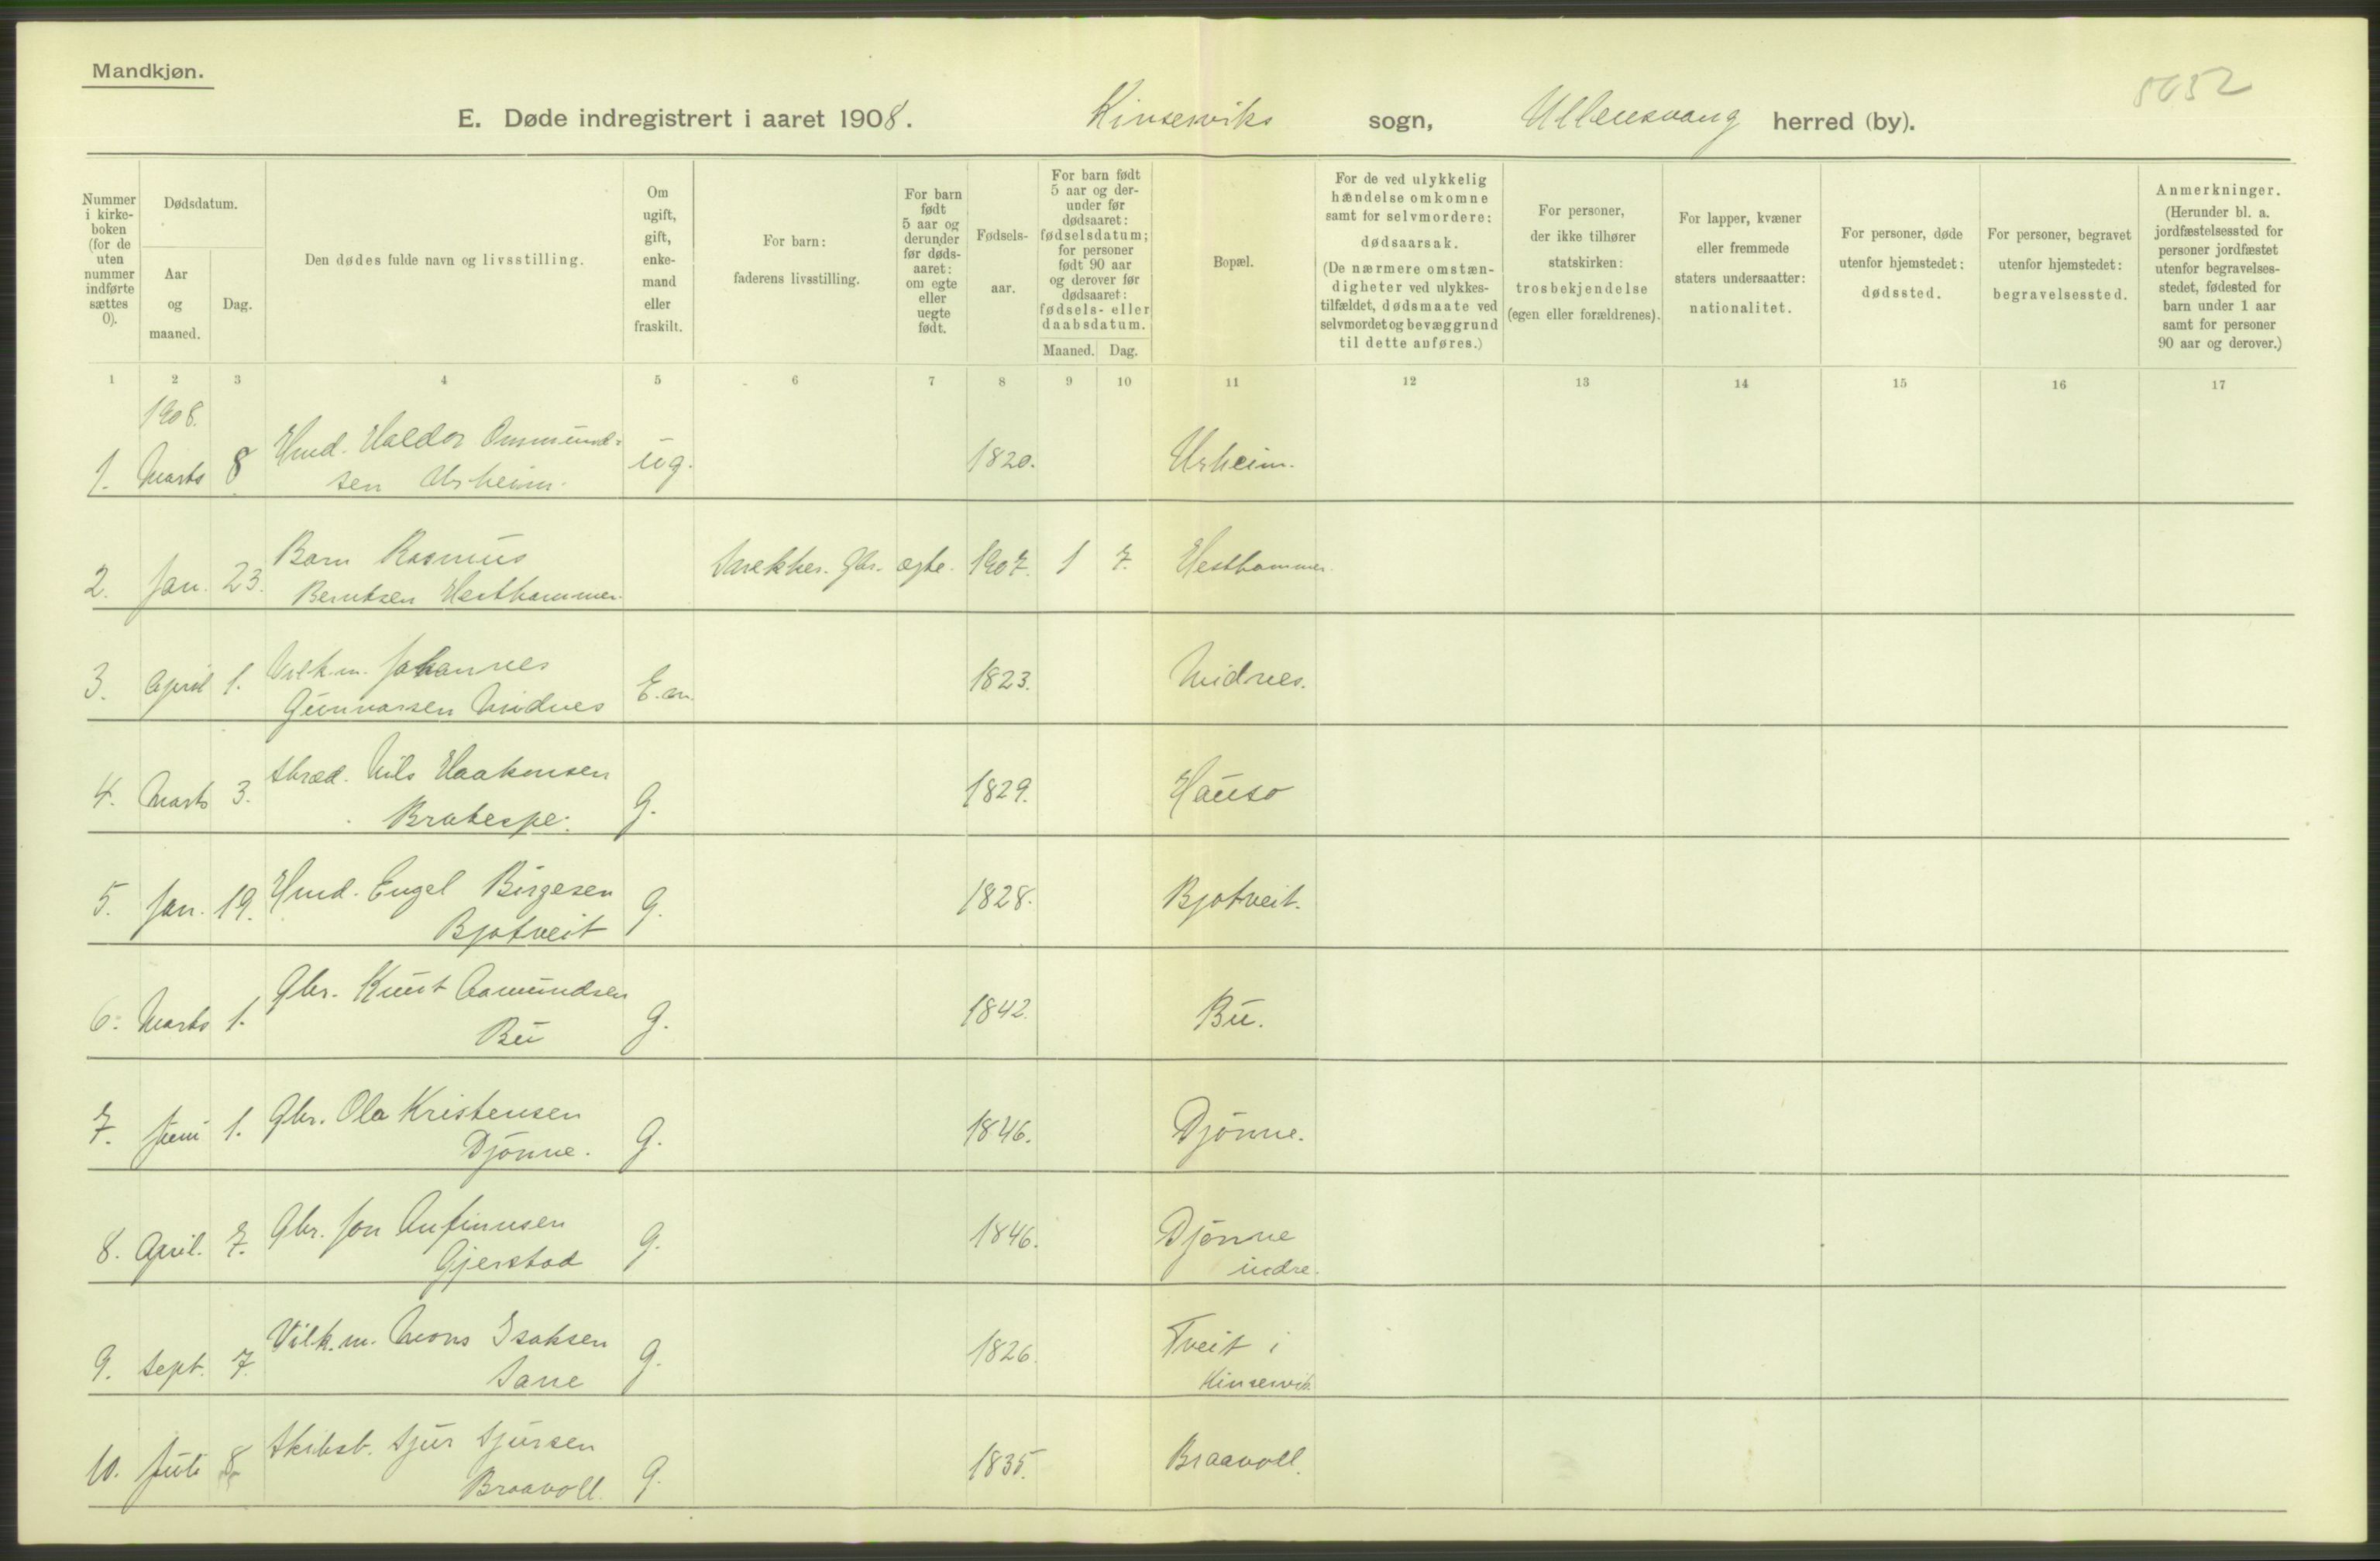 Mandkjøn.
5652
E. Døde indregistrert i aaret 1908. Kinserviks sogn, Ullensvang herred (by).
Nummer i kirke-boken (for de uten nummer indførte sættes 0).
Dødsdatum.
Aar og maaned.
Dag.
Den dødes fulde navn og livsstilling.
Om ugift, gift, enke-mand eller fraskilt.
For barn: faderens livsstilling.
For barn født 5 aar og derunder før døds-aaret: om egte eller uegte født.
Fødsels-aar.
For barn født 5 aar og der-under før dødsaaret: fødselsdatum; for personer født 90 aar og derover før dødsaaret: fødsels- eller daabsdatum.
Maaned. Dag.
Bopæl.
For de ved ulykkelig hændelse omkomne samt for selvmordere: dødsaarsak. (De nærmere omstæn-digheter ved ulykkes-tilfældet, dødsmaate ved selvmordet og bevæggrund til dette anføres.)
For personer, der ikke tilhører statskirken: trosbekjendelse (egen eller forældrenes).
For lapper, kvæner eller fremmede staters undersaatter: nationalitet.
For personer, døde utenfor hjemstedet: dødssted.
For personer, begravet utenfor hjemstedet: begravelsessted.
Anmerkninger. (Herunder bl. a. jordfæstelsessted for personer jordfæstet utenfor begravelses-stedet, fødested for barn under 1 aar samt for personer 90 aar og derover.)
1 2 3 4 5 6 7 8 9 10 11 12 13 14 15 16 17
1908.
1. Marts 8 Hmd. Haldor Ommund-
sen Urheim. ug. 1820. Urheim.
2. Jan. 23. Barn Rasmus
Berntsen Hesthammer. Snekker. Gbr. egte. 1907. 1 7. Hesthammer.
3. April 1. Vilk.m. Johannes
Gunnarsen Midnes E.m. 1823. Midnes.
4. Marts 3. Skræd. Nils Haakensen
Bratespe. G. 1829. Hauso
5. Jan. 19. Hmd. Engel Birgesen
Bjotveit G. 1828. Bjotveit.
6. Marts 1. Gbr. Knut Aamundsen
Bu G. 1842. Bu.
7. Juni 1. Gbr. Ola Kristensen
Djønne. G. 1846. Djønne.
8. April. 7. Gbr. Jon Anfinnsen
Gjerstad G. 1846. Djønne
indre.
9. Sept. 7. Vilk.m. Mons Isaksen
Sane G. 1826. Tveit i
Kinservik.
10. Juli 8 Skibsb. Sjur Sjursen
Braavoll. G. 1835. Braavoll.